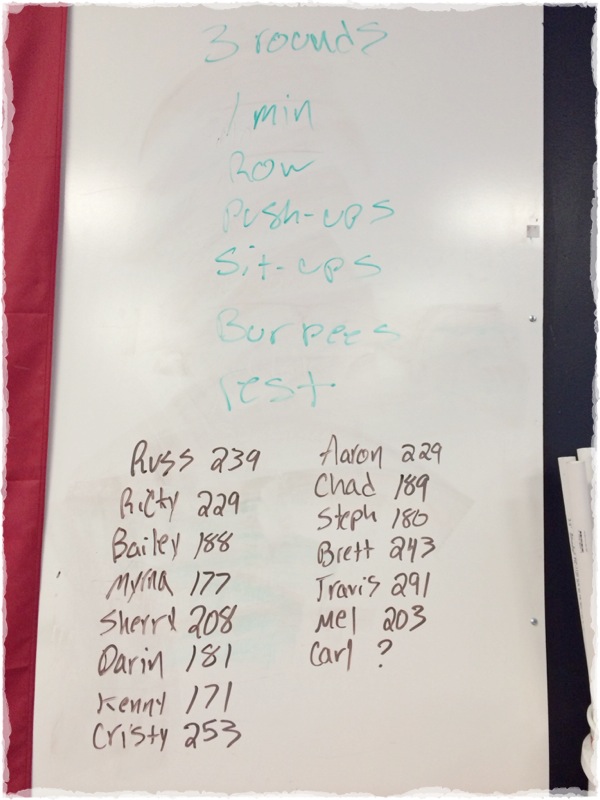 3 rounds
1 min
Row
Push-ups
Sit-ups
Burpees
rest
Russ 239
Ricty 229
Bailey 188
Myrna 177
Sherry 208
Darin 181
Kenny 171
Cristy 253
Aaron 229
Chad 189
Steph 180
Brett 243
Travis 291
Mel 203
Carl ?